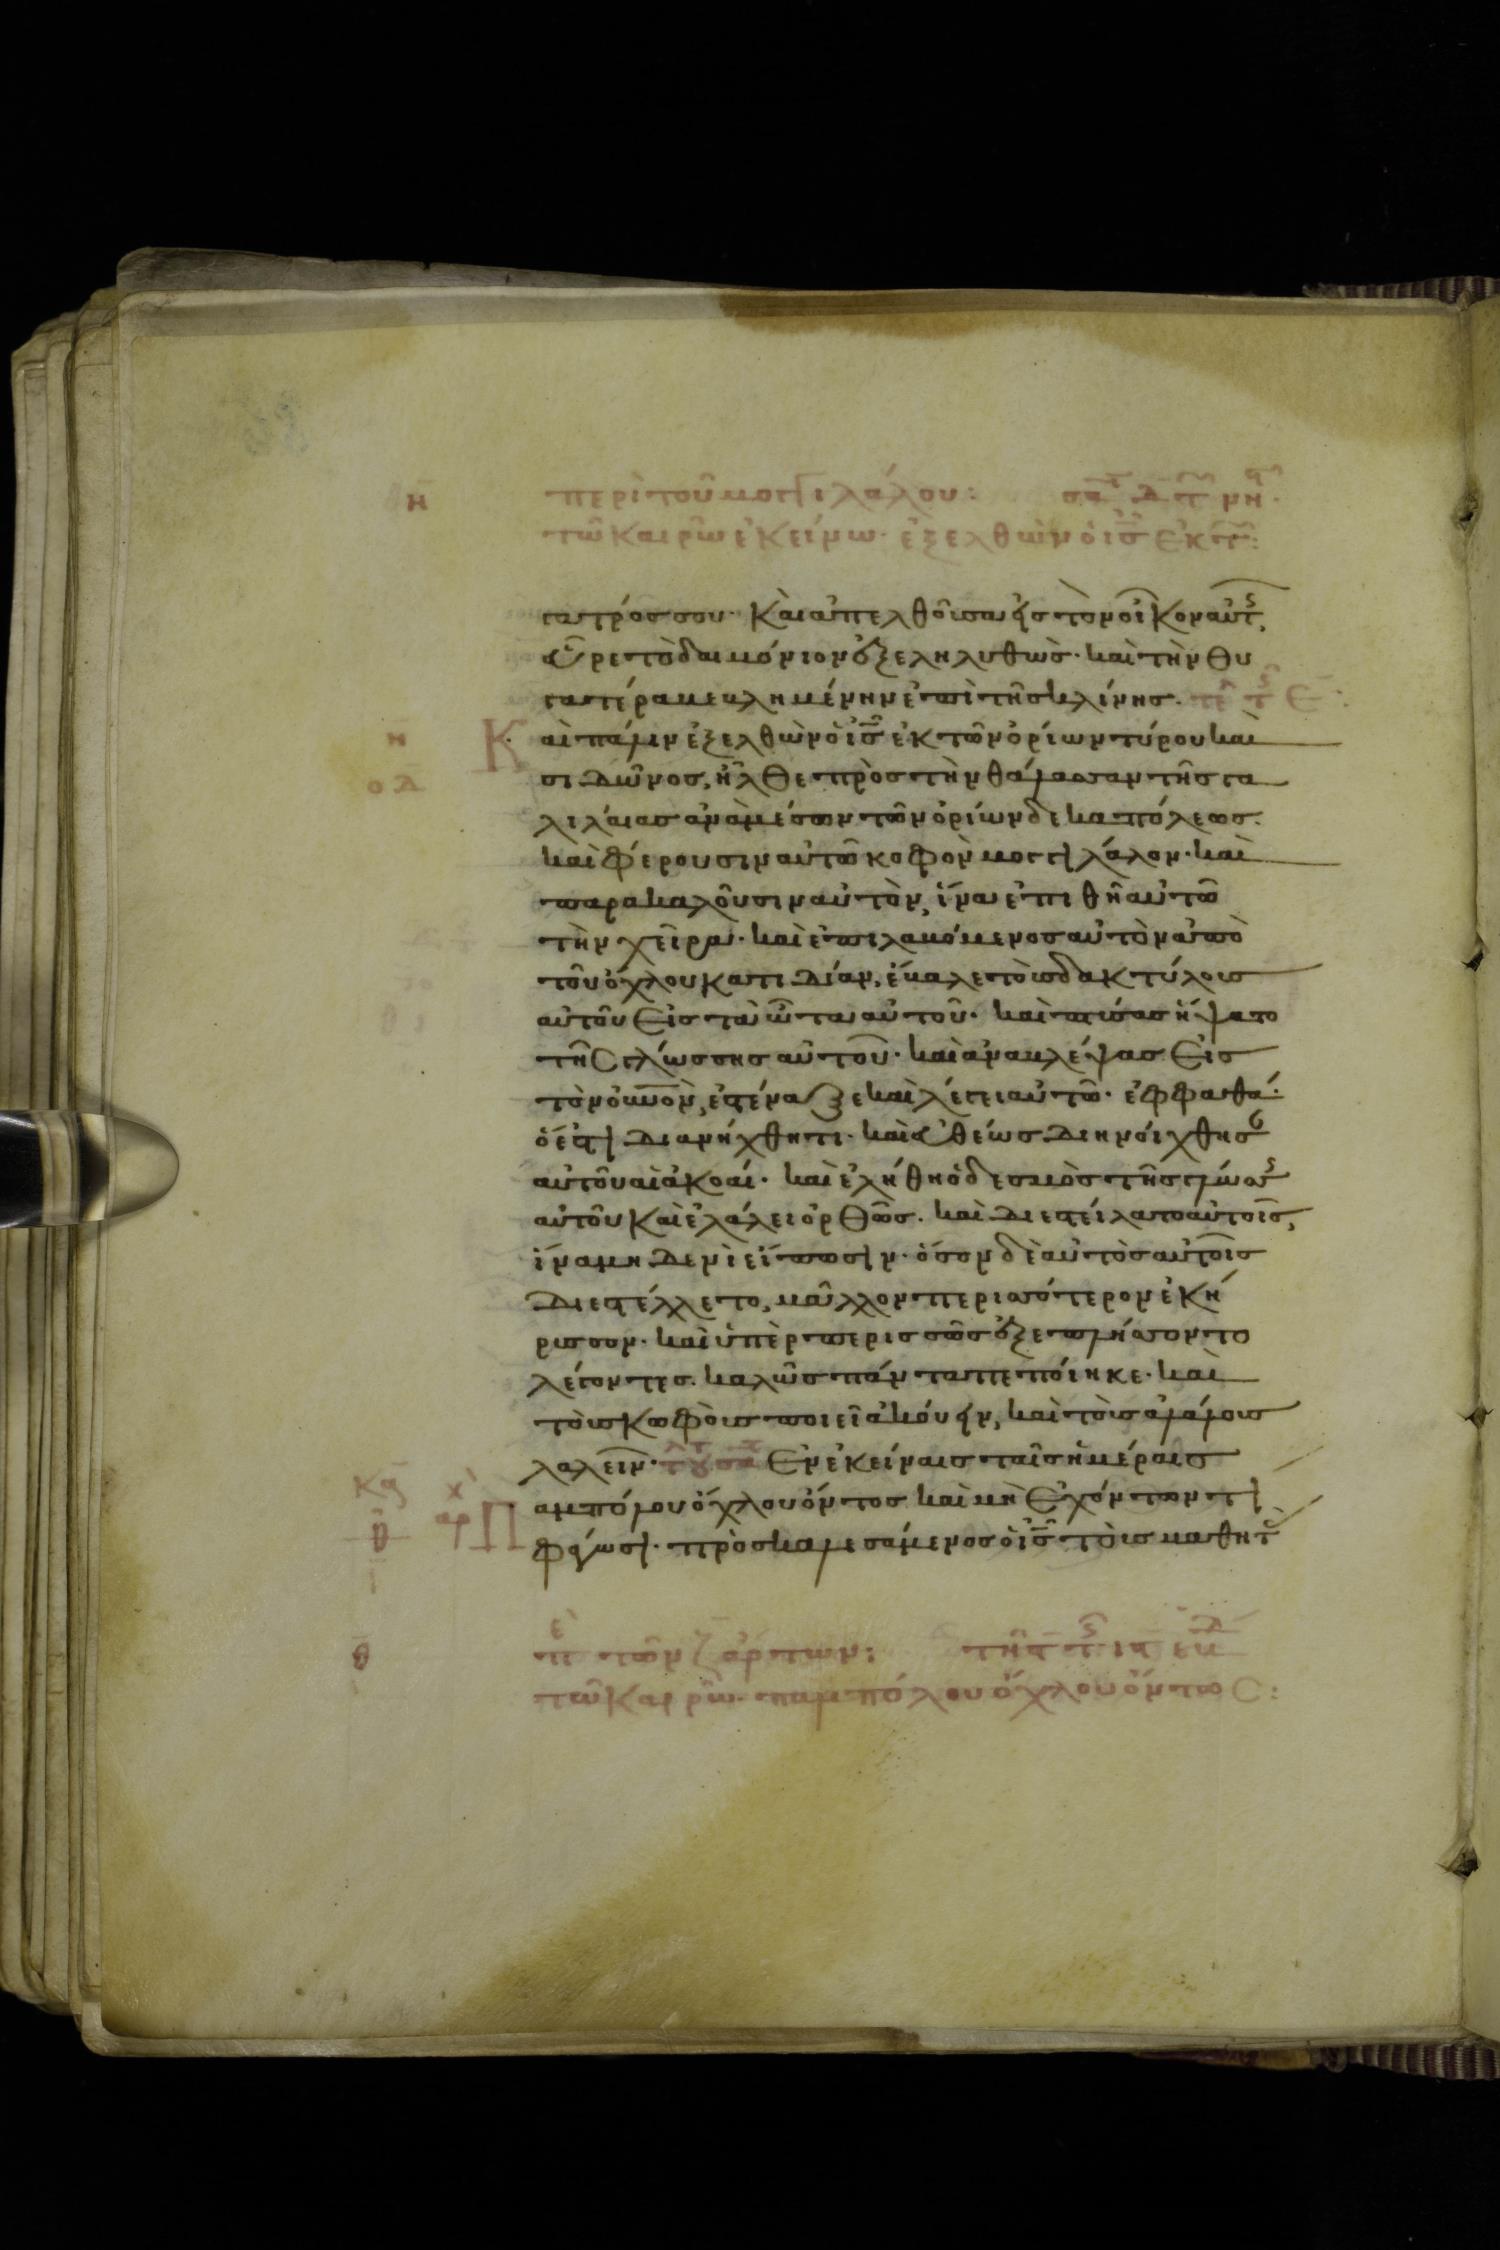 περὶ τοῦ μογγιλάλου:
τῶ καιρῶ ἐκείνω· ἐξελθὼν ὁ ις ἐκ τ:
γατρός σου· Καὶ ἀπελθοῦσα εἰς τὸν οἶκον αὐτ,
εὗρε τὸ δαιμόνιον ἐξεληλυθὼς· καὶ τὴν θυ
γατέρα βεβλημένην ἐπὶ τῆς κλίνης.
Καὶ πάλιν ἐξελθὼν ὁ ις ἐκ τῶν ὁρίων τύρου καὶ
σιδῶνος, ἦλθε πρὸς τὴν θάλασσαν τῆς γα
λιλαίας ἀνὰ μέσων τῶν ὁρίων δεκαπόλεως·
καὶ φέρουσιν αὐτῶ κοφὸν μογγιλάλον· καὶ
παρακαλοῦσιν αὐτὸν, ἵνα ἐπιθῆ αὐτῶ
τὴν χεῖρα· καὶ ἐπιλαβόμενος αὐτὸν ἀπὸ
τοῦ ὄχλου κατιδίαν, ἔβαλε τοὺς δακτύλους
αὐτοῦ εἰς τὰ ὦτα αὐτοῦ· καὶ πτύσας ἥψατο
τῆς γλώσσης αὐτοῦ· καὶ ἀναβλέψας εἰς
τὸν οὐνον, ἐστέναξε καὶ λέγει αὐτῶ· ἐφφαθά·
ὅ ἐστι διανήχθητι· καὶ εὐθέως διηνοίχθησ
αὐτοῦ αἱ ἀκοαί· καὶ ἐλύθη ὁ δεσμὸς τῆς γλώσ
αὐτοῦ καὶ ἐλάλει ὀρθῶς· καὶ διεστείλατο αὐτοῖς,
ἵνα μηδενὶ εἴπωσιν· ὅσον δὲ αὐτὸς αὐτοῖς
διεστέλλετο, μᾶλλον περισσότερον ἐκή
ρυσσον· καὶ ὑπὲρ περισσῶς ἐξεπλήσσοντο
λέγοντες· καλῶς πάντα πεποίηκε· καὶ
τοὺς κωφοὺς ποιεῖ ἀκούειν, καὶ τοὺς ἀλάλους
λαλεῖν· Ἐν ἐκείναις ταῖς ἡμέραις
Παμπόλου ὄχλου ὄντος καὶ μὴ ἐχόντων τι
φάγωσι· προσκαλεσάμενος ὁ ις τοὺς μαθητ
τῶν ζ ἄρτων:
τῶ καιρῶ· παμπόλου ὄχλου ὄντος: